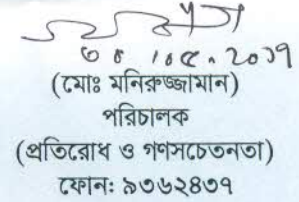 ৩০.০৫.২০১৭
(মোঃ মনিরুজ্জামান)
পরিচালক
(প্রতিরোধ ও গণসচেতনতা)
ফোন: ৯৩৬২৪৩৭